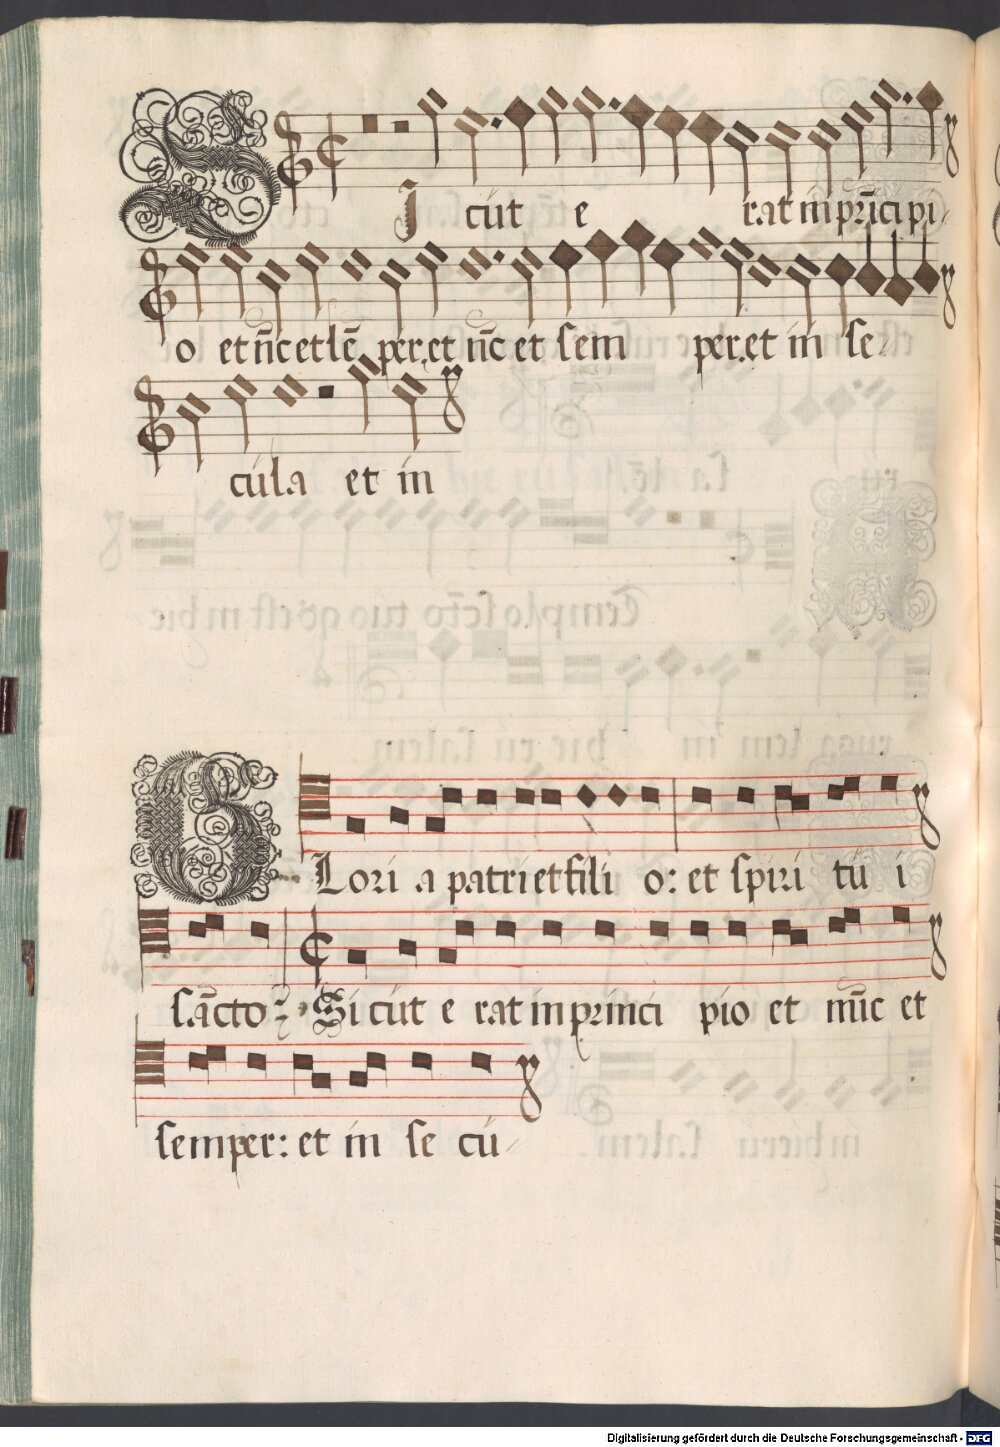 Sicut e rat in prīcipi
o et nc̄ et sēper, et nc̄ et semper, et in se
cula et in
Glori a patri et fili o: et spiri tu i
sācto: Sicut e rat in princi pio et nūc et
semper: et in se cu
Digitalisierung gefördert durch die Deutsche Forschungsgemeinschaft - DFG